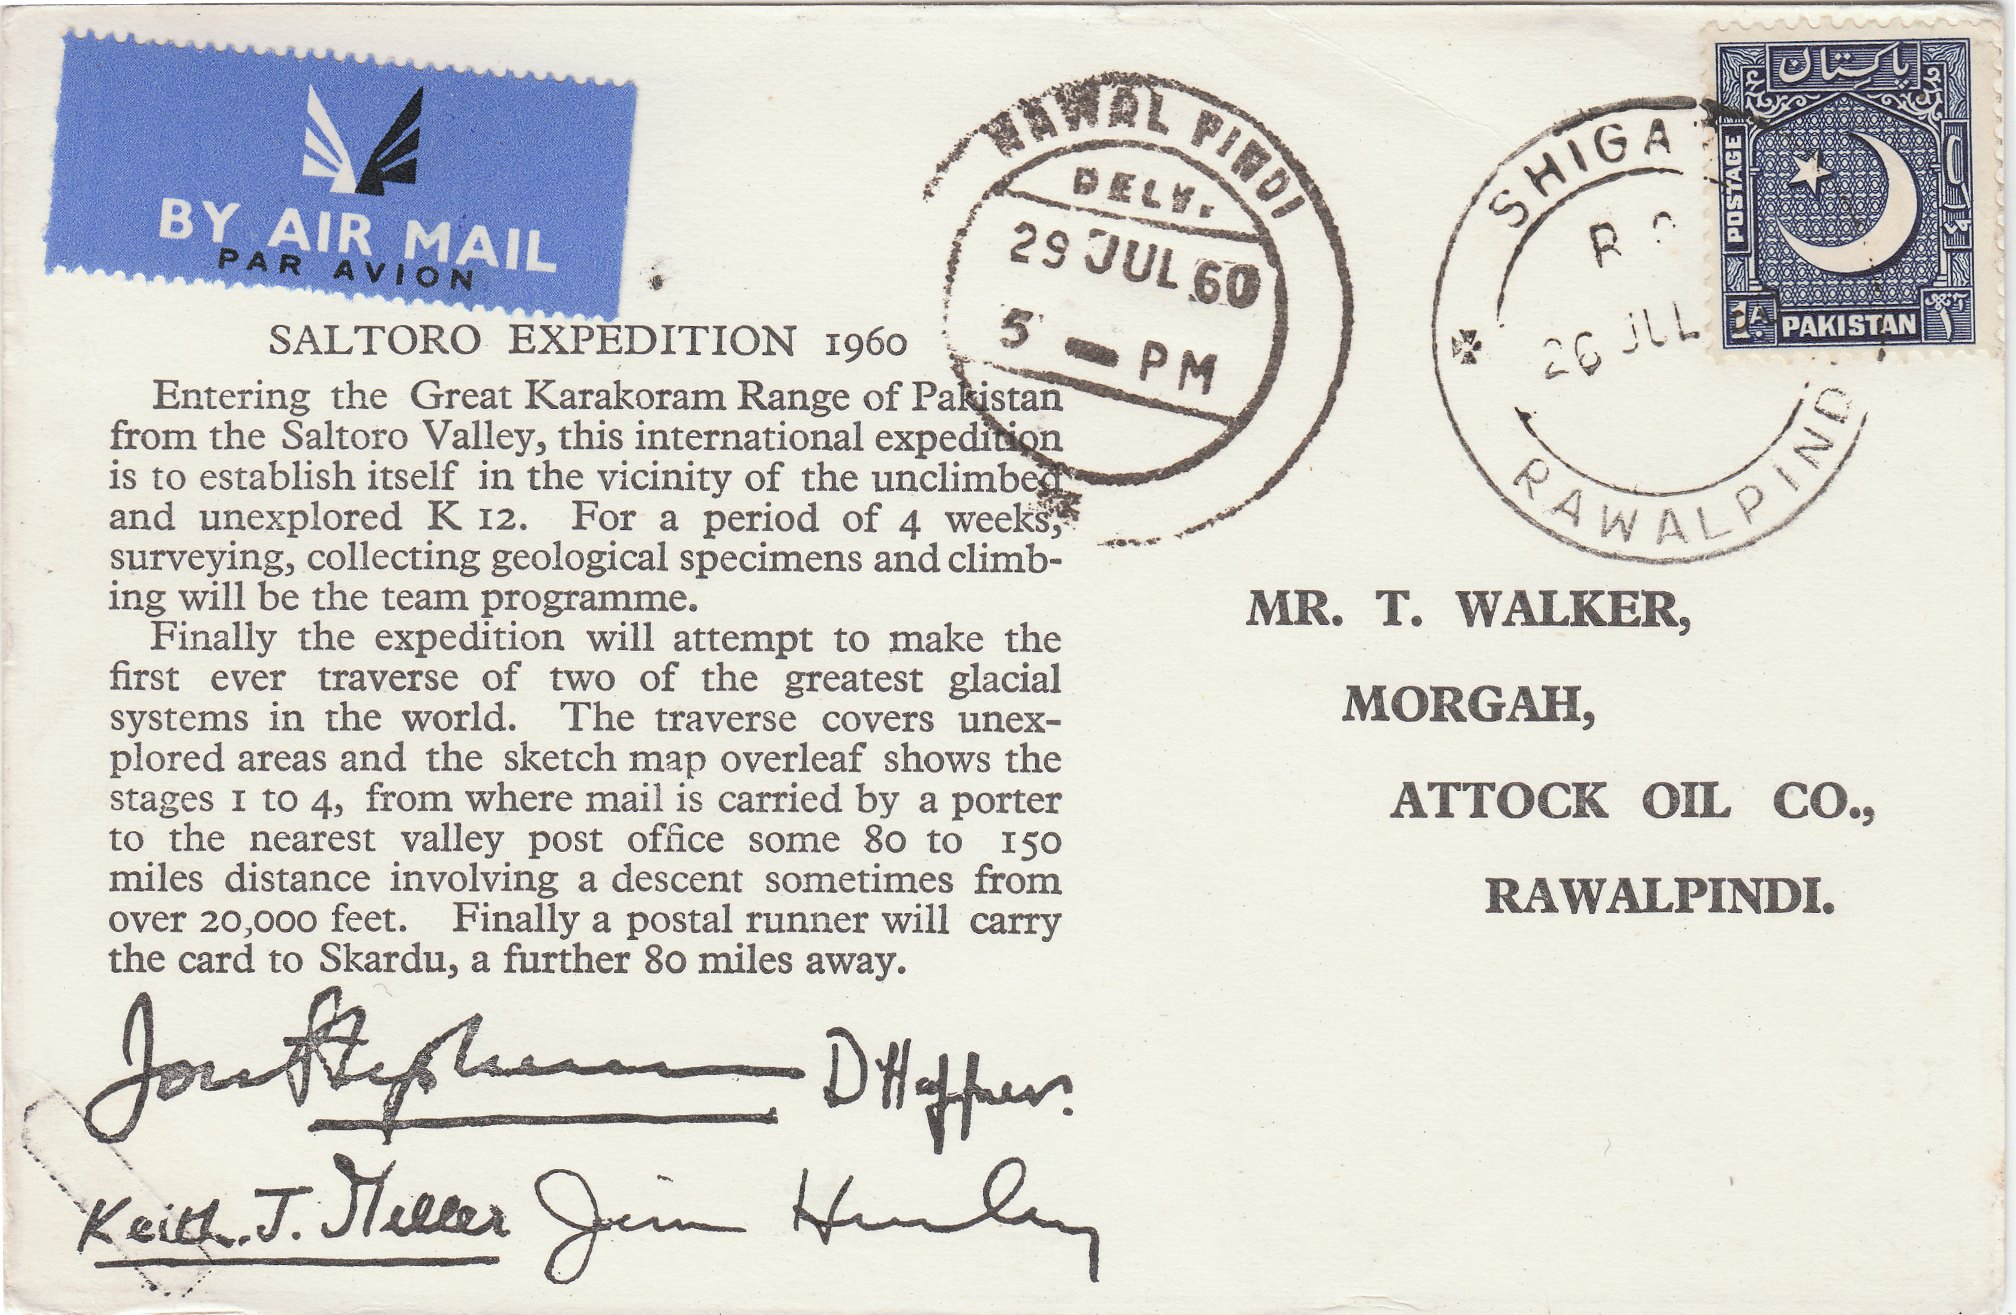 BY AIR MAIL
PAR AVION
RAWAL PINDI
DELY.
29 JUL 60
5 — PM
SHIGA
26 JUL
RAWALPINDI
پاکستان
POSTAGE
1½ A.
PAKISTAN
SALTORO EXPEDITION 1960
Entering the Great Karakoram Range of Pakistan
from the Saltoro Valley, this international expedition
is to establish itself in the vicinity of the unclimbed
and unexplored K 12. For a period of 4 weeks,
surveying, collecting geological specimens and climb-
ing will be the team programme.
Finally the expedition will attempt to make the
first ever traverse of two of the greatest glacial
systems in the world. The traverse covers unex-
plored areas and the sketch map overleaf shows the
stages 1 to 4, from where mail is carried by a porter
to the nearest valley post office some 80 to 150
miles distance involving a descent sometimes from
over 20,000 feet. Finally a postal runner will carry
the card to Skardu, a further 80 miles away.
MR. T. WALKER,
MORGAH,
ATTOCK OIL CO.,
RAWALPINDI.
Jon Stephenson D Haffner.
Keith. J. Miller Jim Hurley